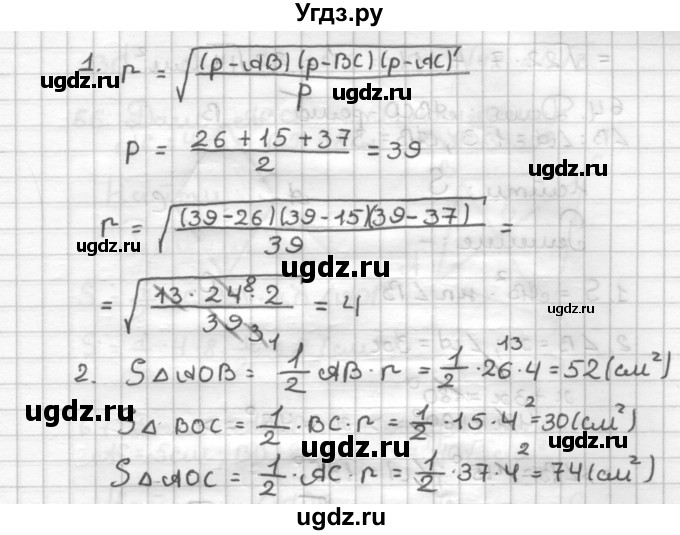 Угдз.ру
1. r = √((p-AB)(p-BC)(p-AC)/p)
ugdz.ru
ugdz.ru
p = (26 + 15 + 37)/2 = 39
ugdz.ru
r = √((39-26)(39-15)(39-37)/39) =
ugdz.ru
ugdz.ru
= √(13 · 24 8 · 2/39 3 1) = 4
ugdz.ru
2. S△AOB = 1/2 AB · r = 1/2 · 26 13 · 4 = 52 (см²)
ugdz.ru
S△BOC = 1/2 · BC · r = 1/2 · 15 · 4 2 = 30 (см²)
ugdz.ru
ugdz.ru
S△AOC = 1/2 · AC · r = 1/2 · 37 · 4 2 = 74 (см²)
ugdz.ru
ugdz.ru